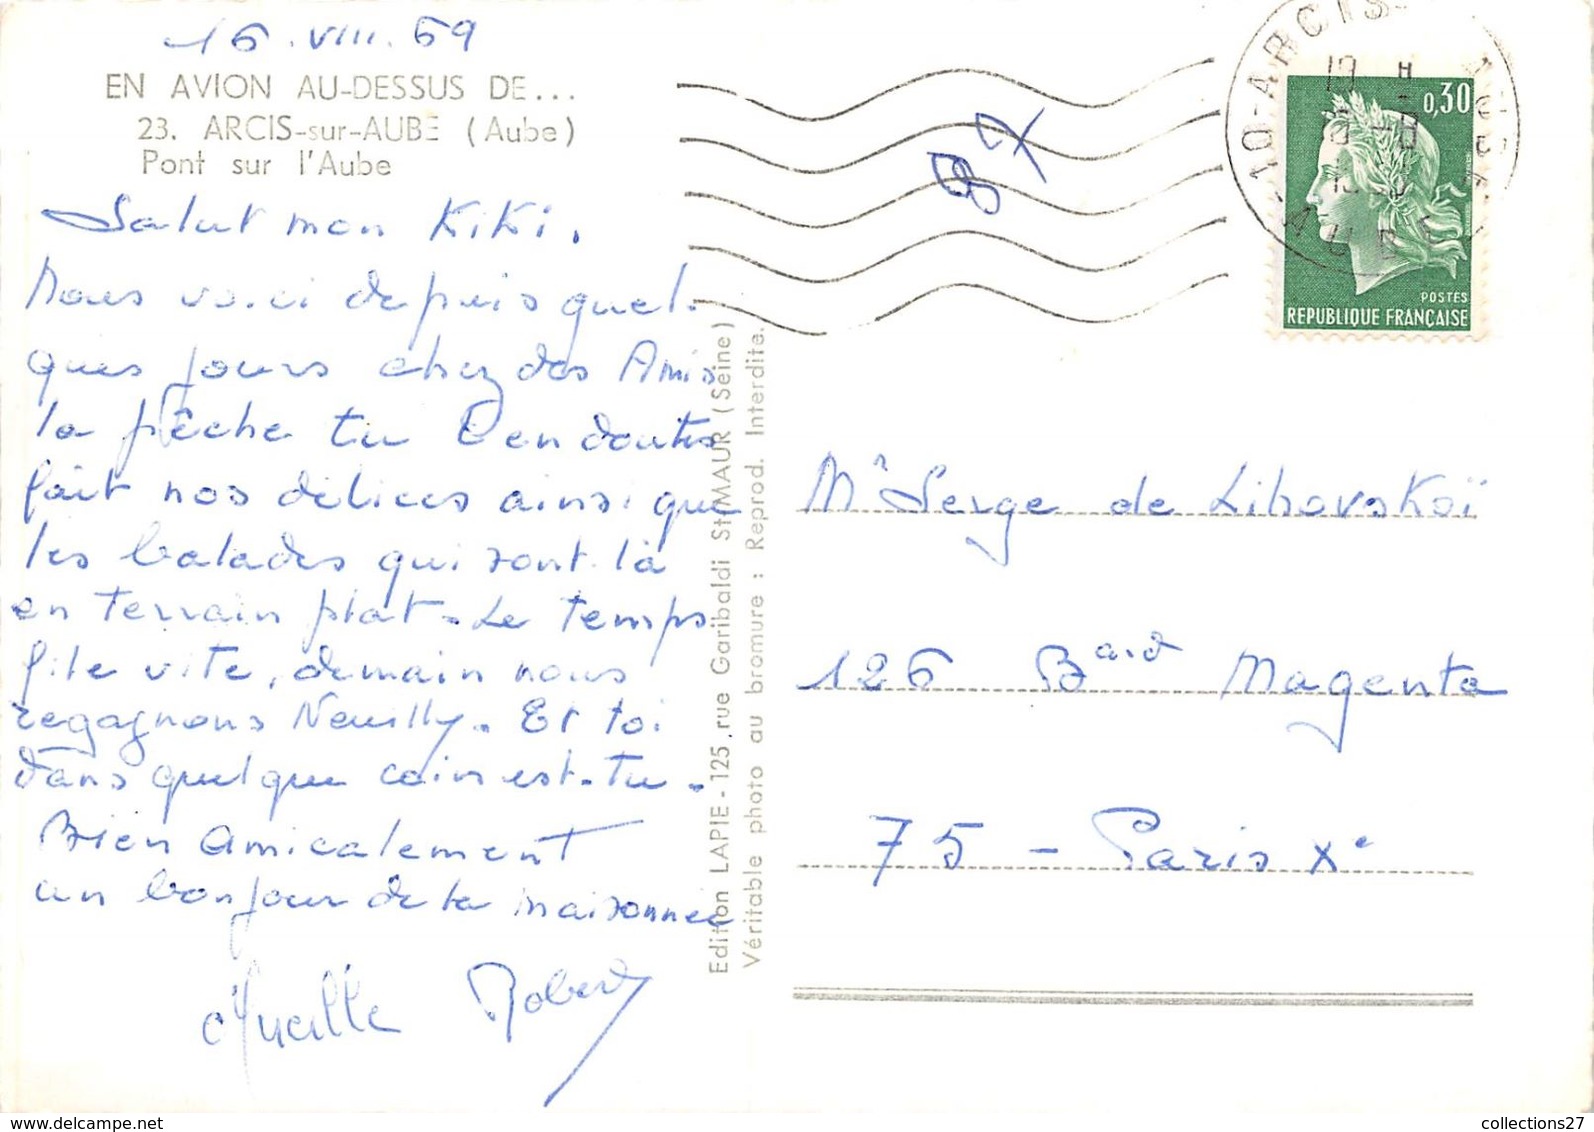 16.VIII.69
EN AVION AU-DESSUS DE...
23. ARCIS-sur-AUBE (Aube)
Pont sur l'Aube
Salut mon Kiki,
Nous voici depuis quel-
ques jours chez des Amis
la pêche tu t'en doutes
fait nos délices ainsi que
les balades qui sont là
en terrain plat. Le temps
file vite, demain nous
regagnons Neuilly. Et toi
dans quelque coin est-tu.
Bien amicalement
un bonjour de la maisonnée
Lucette Robert
Edition LAPIE - 125, rue Garibaldi St-MAUR (Seine)
Véritable photo au bromure : Reprod. Interdite.
87
10-ARCIS-
AUBE
0,30
POSTES
REPUBLIQUE FRANÇAISE
Mr Serge de Lihovskoï
126 Bard Magenta
75 - Paris Xe
collections27